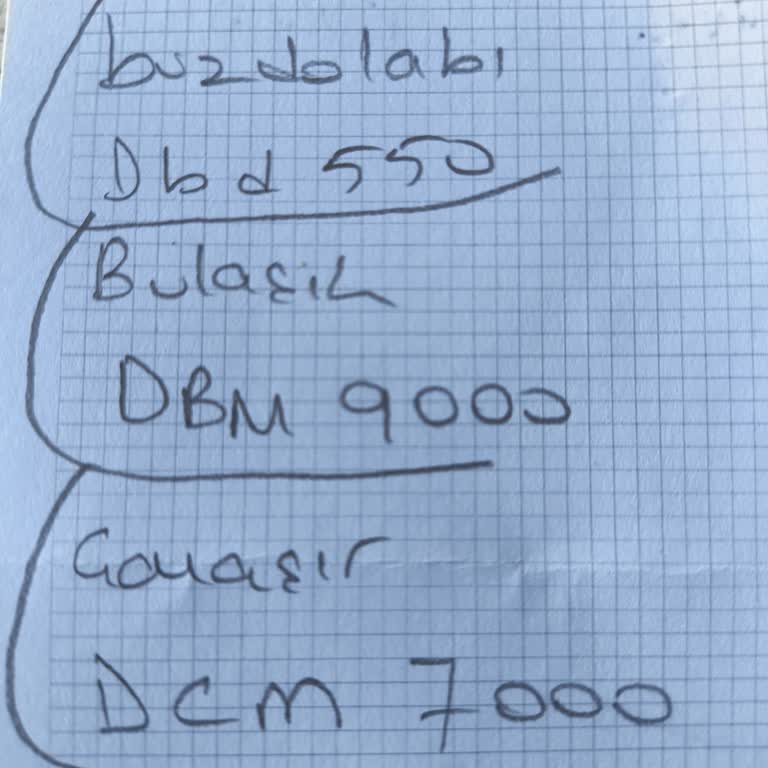 buzdolabı
Dbd 550
Bulaşık
DBM 9000
Çamaşır
DCM 7000